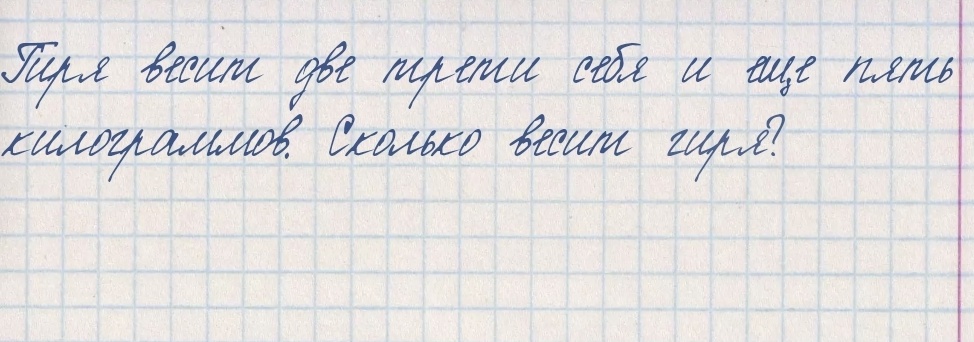 Гиря весит две трети себя и еще пять
килограммов. Сколько весит гиря?